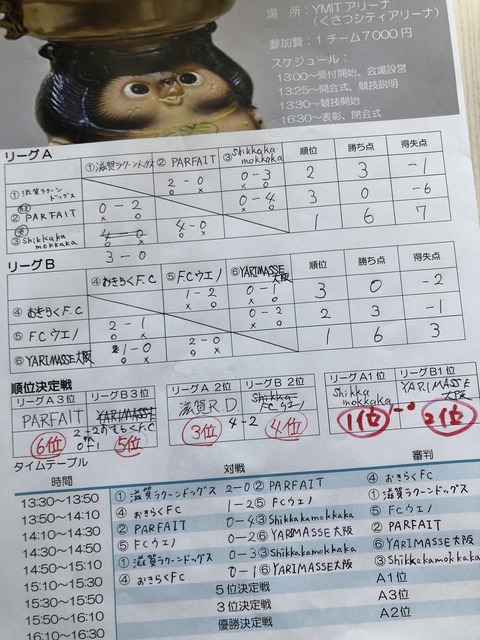 場 所：YMIT アリーナ
（くさつシティアリーナ）
参加費：１チーム7000円
スケジュール：
13:00～受付開始、会場設営
13:25～開会式、競技説明
13:30～競技開始
16:30～表彰、閉会式
リーグA
①滋賀ラクーンドッグス ②PARFAIT ③Shikkaka mokkaka 順位 勝ち点 得失点
①滋賀ラクーンドッグス 2-0 0-3 2 3 -1
②PARFAIT 0-2 0-4 3 0 -6
③Shikkaka mokkaka 4-0 4-0 1 6 7
3-0
リーグB
④おきらくF.C ⑤F.Cウエノ ⑥YARIMASSE大阪 順位 勝ち点 得失点
④おきらくF.C 1-2 0-1 3 0 -2
⑤F.Cウエノ 2-1 0-2 2 3 -1
⑥YARIMASSE大阪 1-0 2-0 1 6 3
順位決定戦
リーグA 3位 リーグB 3位 リーグA 2位 リーグB 2位 リーグA1位 リーグB1位
PARFAIT YARIMASSE おきらくF.C 滋賀R.D FCウエノ Shikka mokkaka YARIMASSE大阪
2-2
0-1 4-2
6位 5位 3位 4位 1位 2位
タイムテーブル
時間 対戦 審判
13:30～13:50 ①滋賀ラクーンドッグス 2-0 ②PARFAIT ④おきらくFC
13:50～14:10 ④おきらくFC 1-2 ⑤FCウエノ ①滋賀ラクーンドッグス
14:10～14:30 ②PARFAIT 0-4 ③Shikkakamokkaka ⑤FCウエノ
14:30～14:50 ⑤FCウエノ 0-2 ⑥YARIMASSE大阪 ②PARFAIT
14:50～15:10 ①滋賀ラクーンドッグス 0-3 ③Shikkakamokkaka ⑥YARIMASSE大阪
15:10～15:30 ④おきらくFC 0-1 ⑥YARIMASSE大阪 ③Shikkakamokkaka
15:30～15:50 5位決定戦 A1位
15:50～16:10 3位決定戦 A3位
16:10～16:30 優勝決定戦 A2位